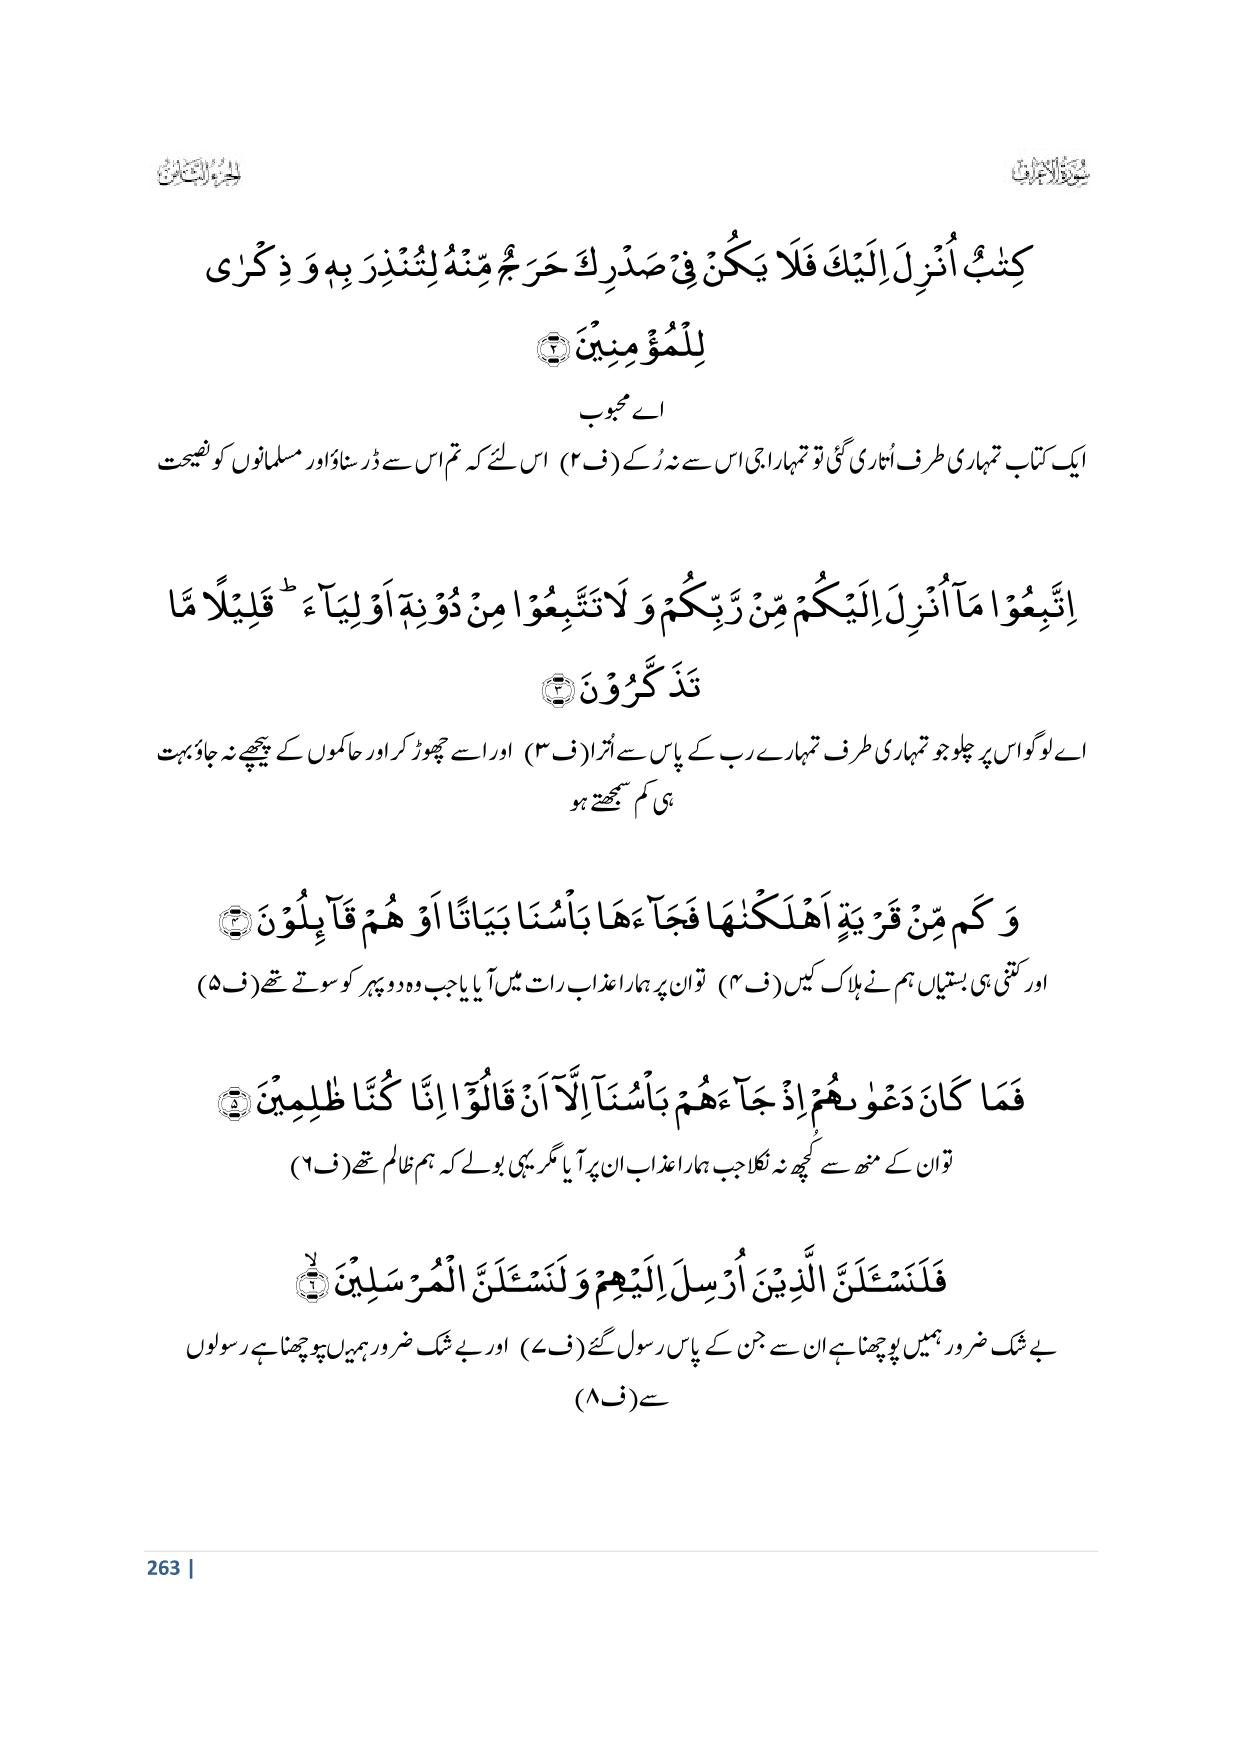 سُوْرَةُ الْاَعْرَاف
الجزء الثامن
كِتٰبٌ اُنْزِلَ اِلَيْكَ فَلَا يَكُنْ فِيْ صَدْرِكَ حَرَجٌ مِّنْهُ لِتُنْذِرَ بِهٖ وَ ذِكْرٰى
لِلْمُؤْمِنِيْنَ ﴿۲﴾
اے محبوب
ایک کتاب تمہاری طرف اُتاری گئی تو تمہارا جی اس سے نہ رُکے (ف۲) اس لئے کہ تم اس سے ڈر سناؤ اور مسلمانوں کو نصیحت
اِتَّبِعُوْا مَاۤ اُنْزِلَ اِلَيْكُمْ مِّنْ رَّبِّكُمْ وَ لَا تَتَّبِعُوْا مِنْ دُوْنِهٖۤ اَوْلِيَآءَ ؕ قَلِيْلًا مَّا
تَذَكَّرُوْنَ ﴿۳﴾
اے لوگو اس پر چلو جو تمہاری طرف تمہارے رب کے پاس سے اُترا (ف۳) اور اسے چھوڑ کر اور حاکموں کے پیچھے نہ جاؤ بہت
ہی کم سمجھتے ہو
وَ كَم مِّنْ قَرْيَةٍ اَهْلَكْنٰهَا فَجَآءَهَا بَاْسُنَا بَيَاتًا اَوْ هُمْ قَآئِلُوْنَ ﴿۴﴾
اور کتنی ہی بستیاں ہم نے ہلاک کیں (ف۴) تو ان پر ہمارا عذاب رات میں آیا یا جب وہ دوپہر کو سوتے تھے (ف۵)
فَمَا كَانَ دَعْوٰىهُمْ اِذْ جَآءَهُمْ بَاْسُنَاۤ اِلَّاۤ اَنْ قَالُوْۤا اِنَّا كُنَّا ظٰلِمِيْنَ ﴿۵﴾
تو ان کے منھ سے کُچھ نہ نکلا جب ہمارا عذاب ان پر آیا مگر یہی بولے کہ ہم ظالم تھے (ف۶)
فَلَنَسْـَٔلَنَّ الَّذِيْنَ اُرْسِلَ اِلَيْهِمْ وَ لَنَسْـَٔلَنَّ الْمُرْسَلِيْنَ ۙ﴿۶﴾
بے شک ضرور ہمیں پوچھنا ہے ان سے جن کے پاس رسول گئے (ف۷) اور بے شک ضرور ہمیں پوچھنا ہے رسولوں
سے (ف۸)
263 |